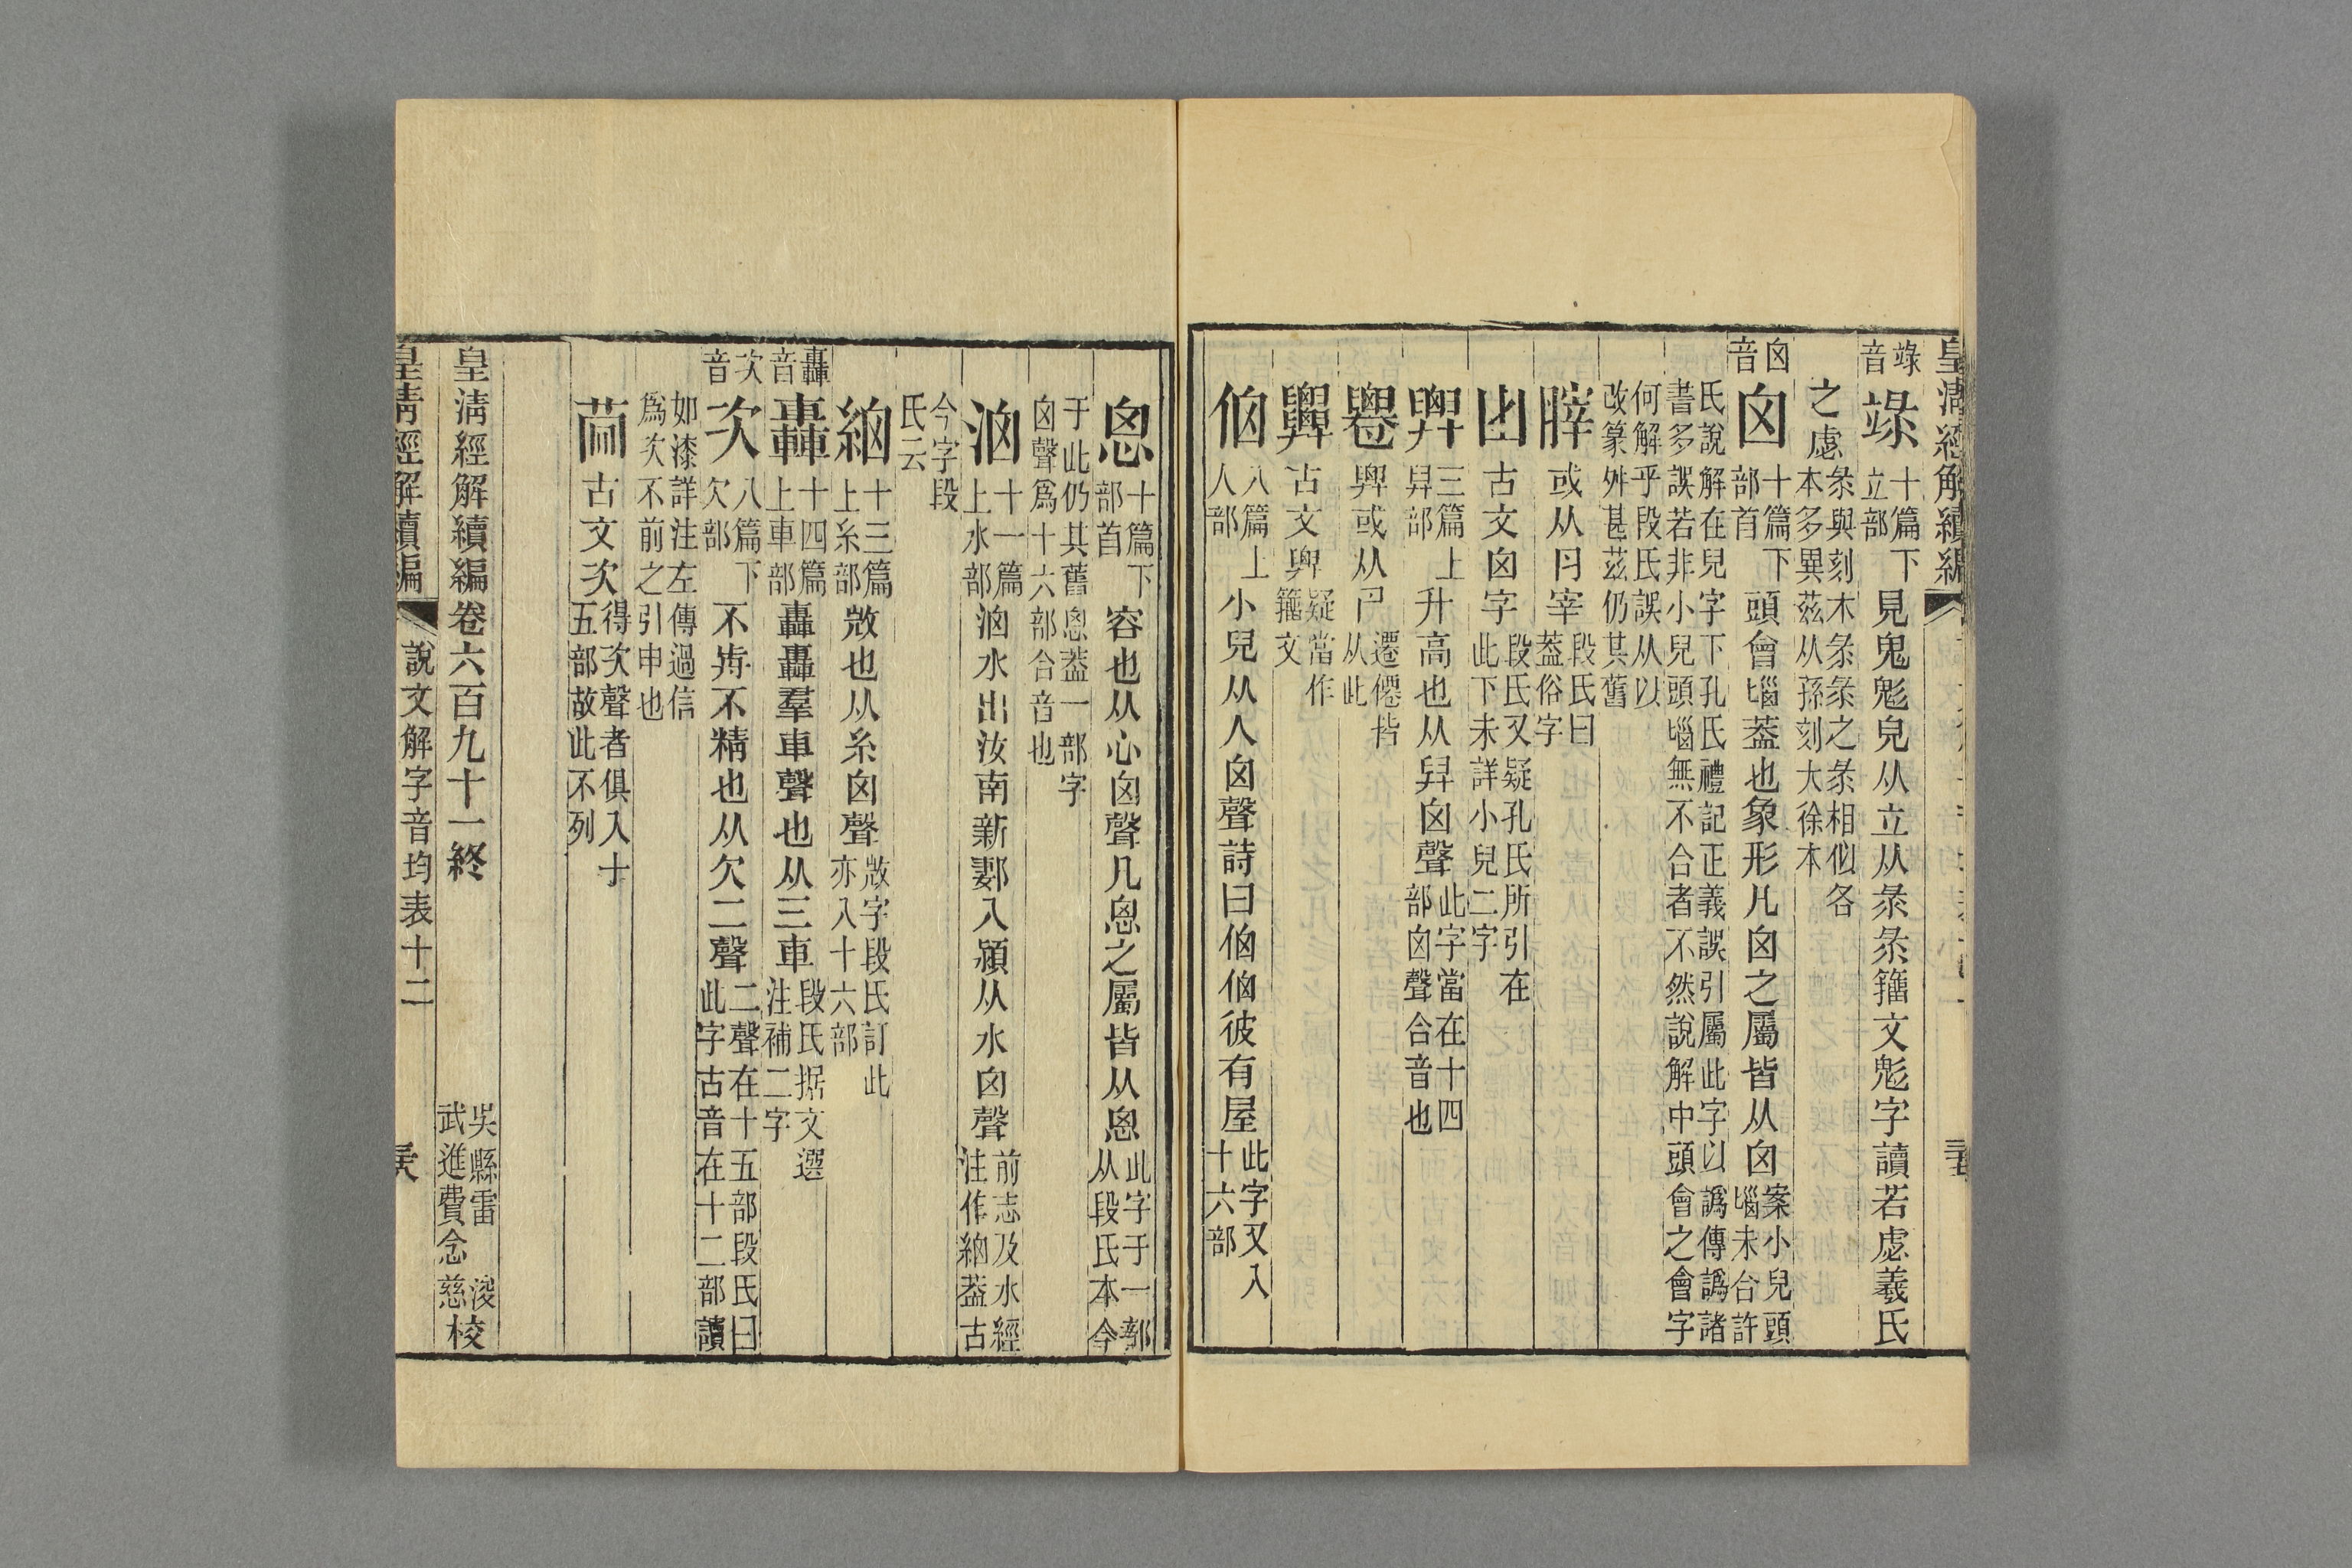 皇清經解續編
𥩈音
𥩈十篇下立部見鬼鬽皃从立从彔彔籒文鬽字讀若虙羲氏
之虙彔與刻木彔彔之彔相似各本多異茲从孫刻大徐本
囟音
囟十篇下部首頭會𡿺蓋也象形凡囟之屬皆从囟案小兒頭𡿺未合許
氏說解在兒字下孔氏禮記正義誤引屬此字以譌傳譌諸書多誤若非小兒頭𡿺無不合者不然說解中頭會之會字
何解乎段氏誤从以改篆舛甚茲仍其舊
䏁或从⺼宰段氏曰蓋俗字
𠙹古文囟字段氏又疑孔氏所引在此下未詳小兒二字
𢍱三篇上舁部升高也从舁囟聲此字當在十四部囟聲合音也
𢍱或从卪遷僊皆从此
古文𢍱疑當作籒文
伵八篇上人部小兒从人囟聲詩曰伵伵彼有屋此字又入十六部
恖十篇下部首容也从心囟聲凡恖之屬皆从恖此字于一部从段氏本今
于此仍其舊恖蓋一部字囟聲爲十六部合音也
洶十一篇上水部洶水出汝南新郪入潁从水囟聲前志及水經注作細蓋古
今字段氏云
細十三篇上糸部㪣也从糸囟聲㪣字段氏訂此亦入十六部
轟音
轟十四篇上車部轟轟羣車聲也从三車段氏据文選注補二字
次音
次八篇下欠部不歬不精也从欠二聲二聲在十五部段氏曰此字古音在十二部讀
如漆詳注左傳過信爲次不前之引申也
𦮏古文次得次聲者俱入十五部故此不列
皇清經解續編卷六百九十一終
吳縣雷浚
武進費念慈校
皇清經解續編
說文解字音均表十二